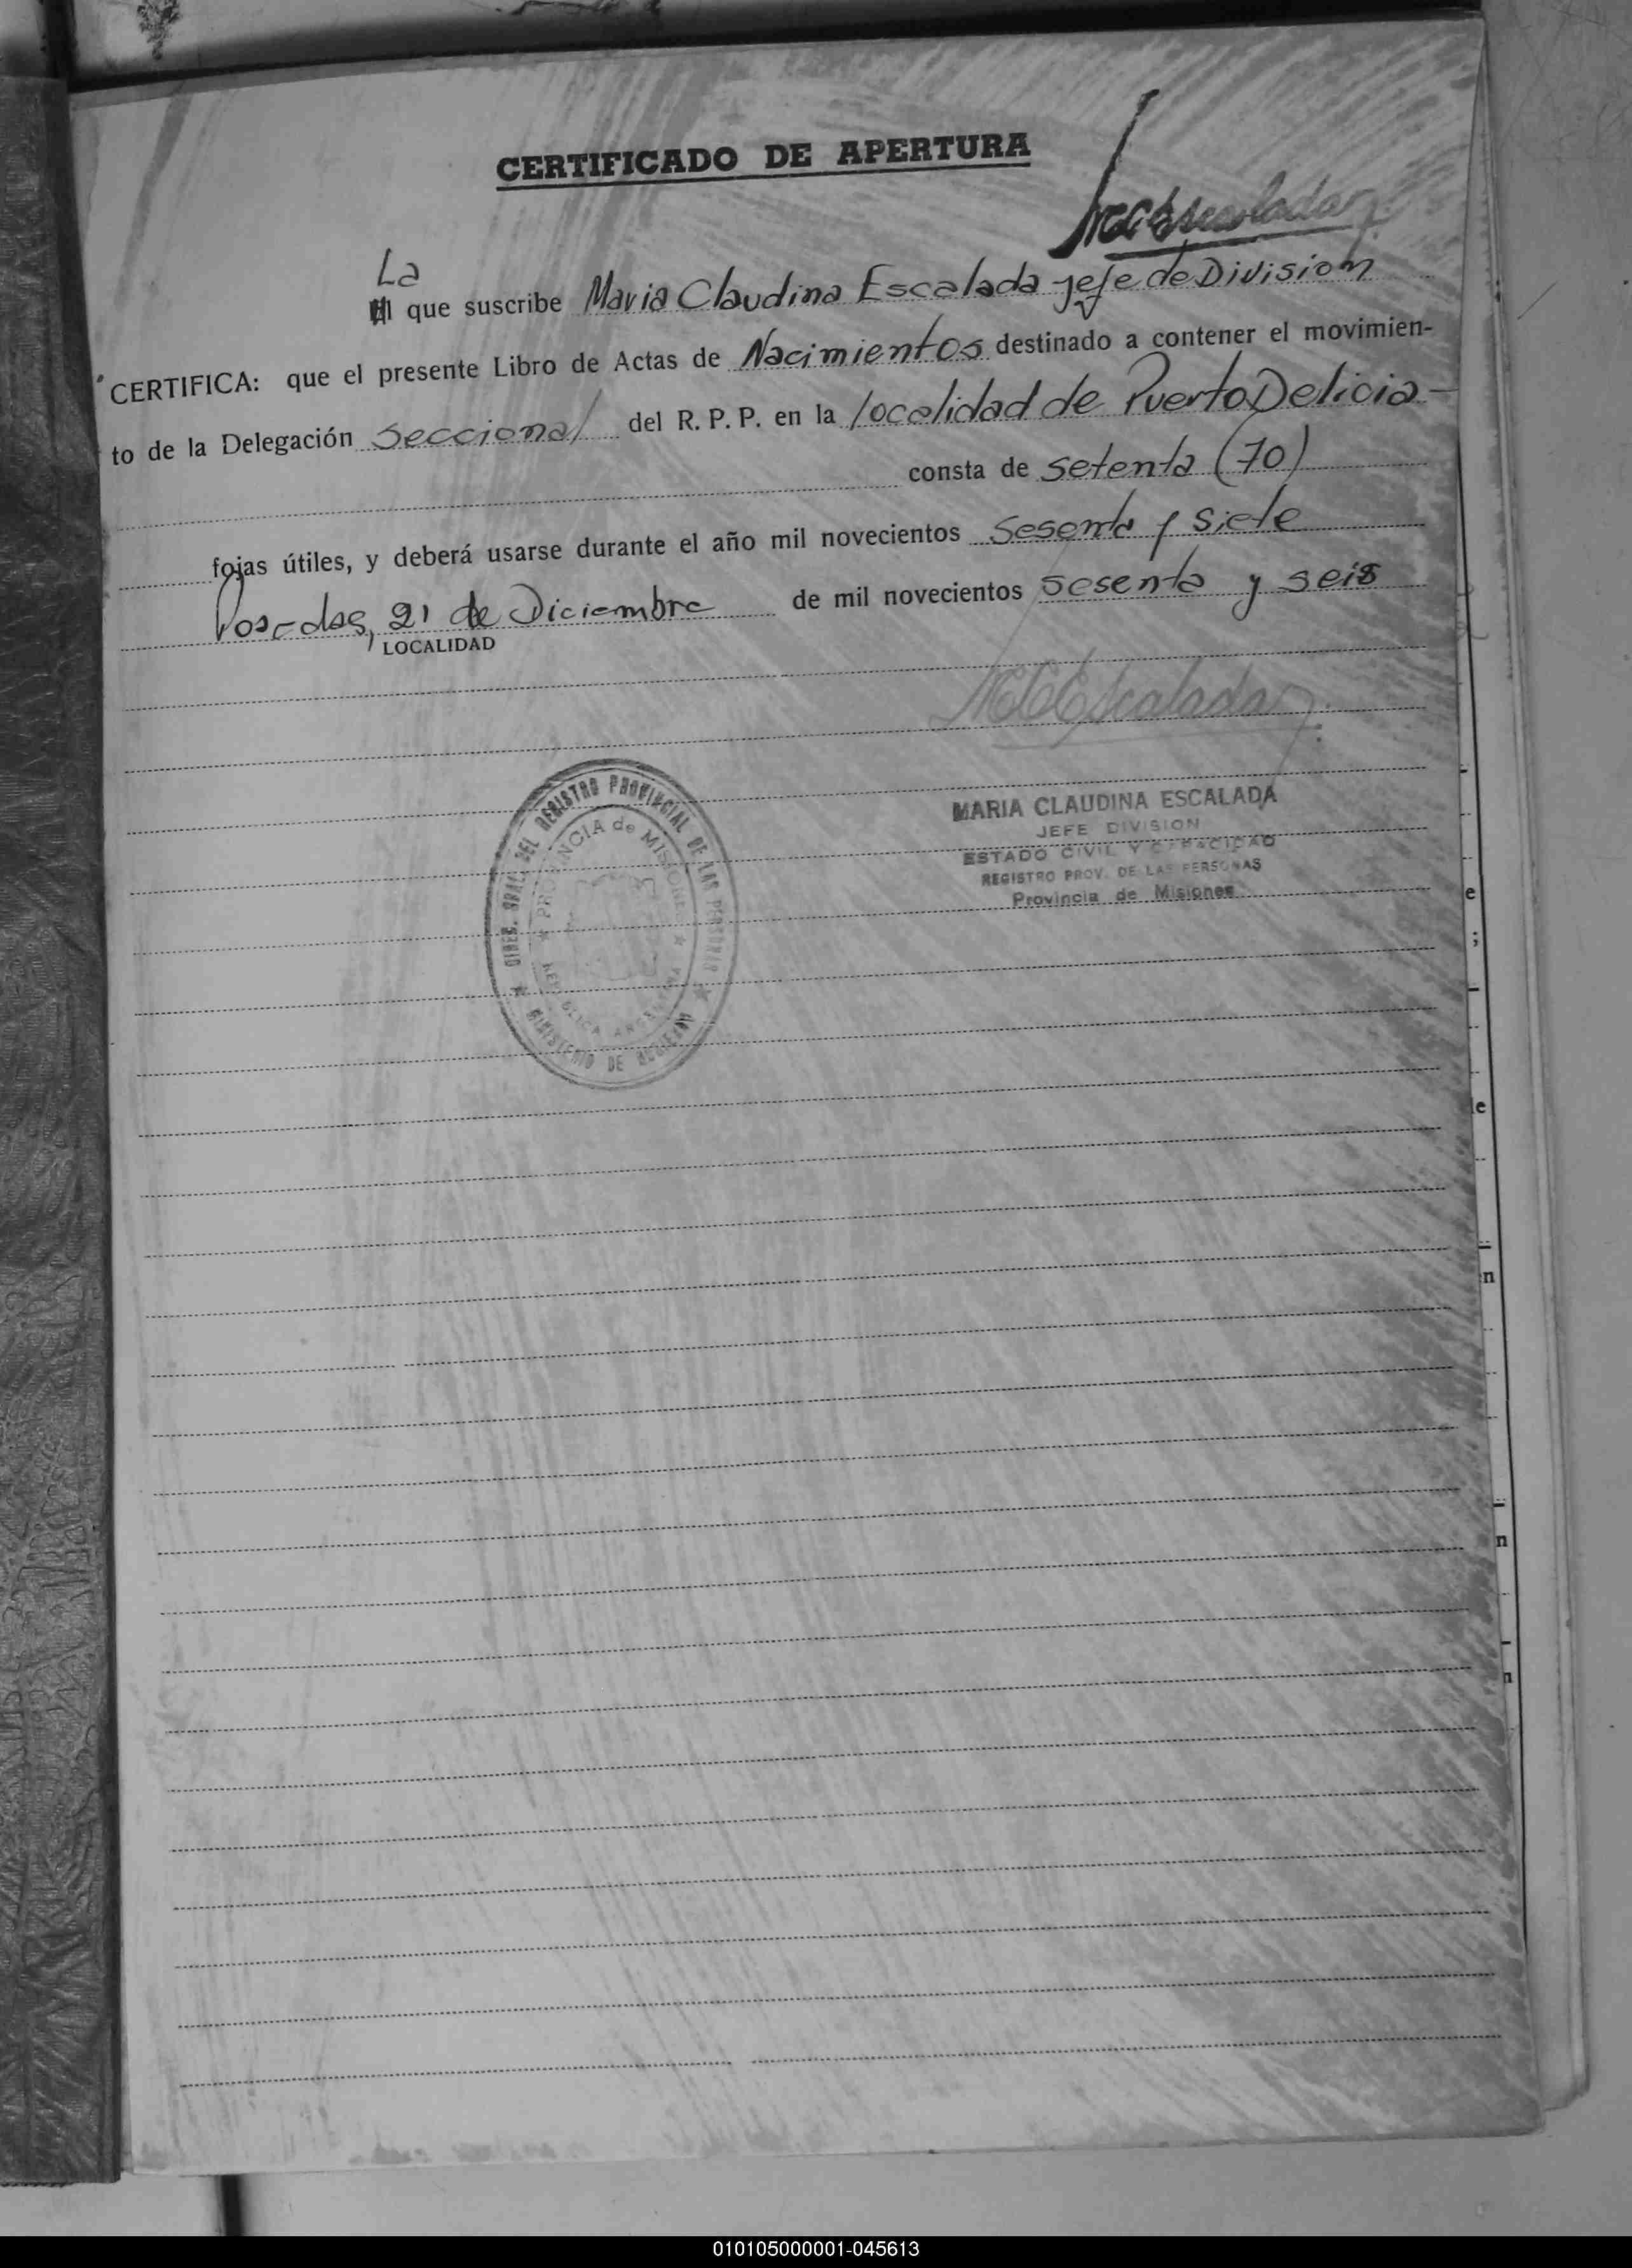 CERTIFICADO DE APERTURA
MCEscalada
La
El que suscribe Maria Claudina Escalada jefe de Division
CERTIFICA: que el presente Libro de Actas de Nacimientos destinado a contener el movimien-
to de la Delegación Seccional del R. P. P. en la localidad de Puerto Delicia -
consta de setenta (70)
fojas útiles, y deberá usarse durante el año mil novecientos Sesenta y Siete
Posadas, 21 de Diciembre de mil novecientos sesenta y seis
LOCALIDAD
MCEscalada
MARIA CLAUDINA ESCALADA
JEFE DIVISION
ESTADO CIVIL Y CAPACIDAD
REGISTRO PROV. DE LAS PERSONAS
Provincia de Misiones
DIREC. GRAL. DEL REGISTRO PROVINCIAL DE LAS PERSONAS
PROVINCIA de MISIONES
REPUBLICA ARGENTINA
MINISTERIO DE GOBIERNO
010105000001-045613